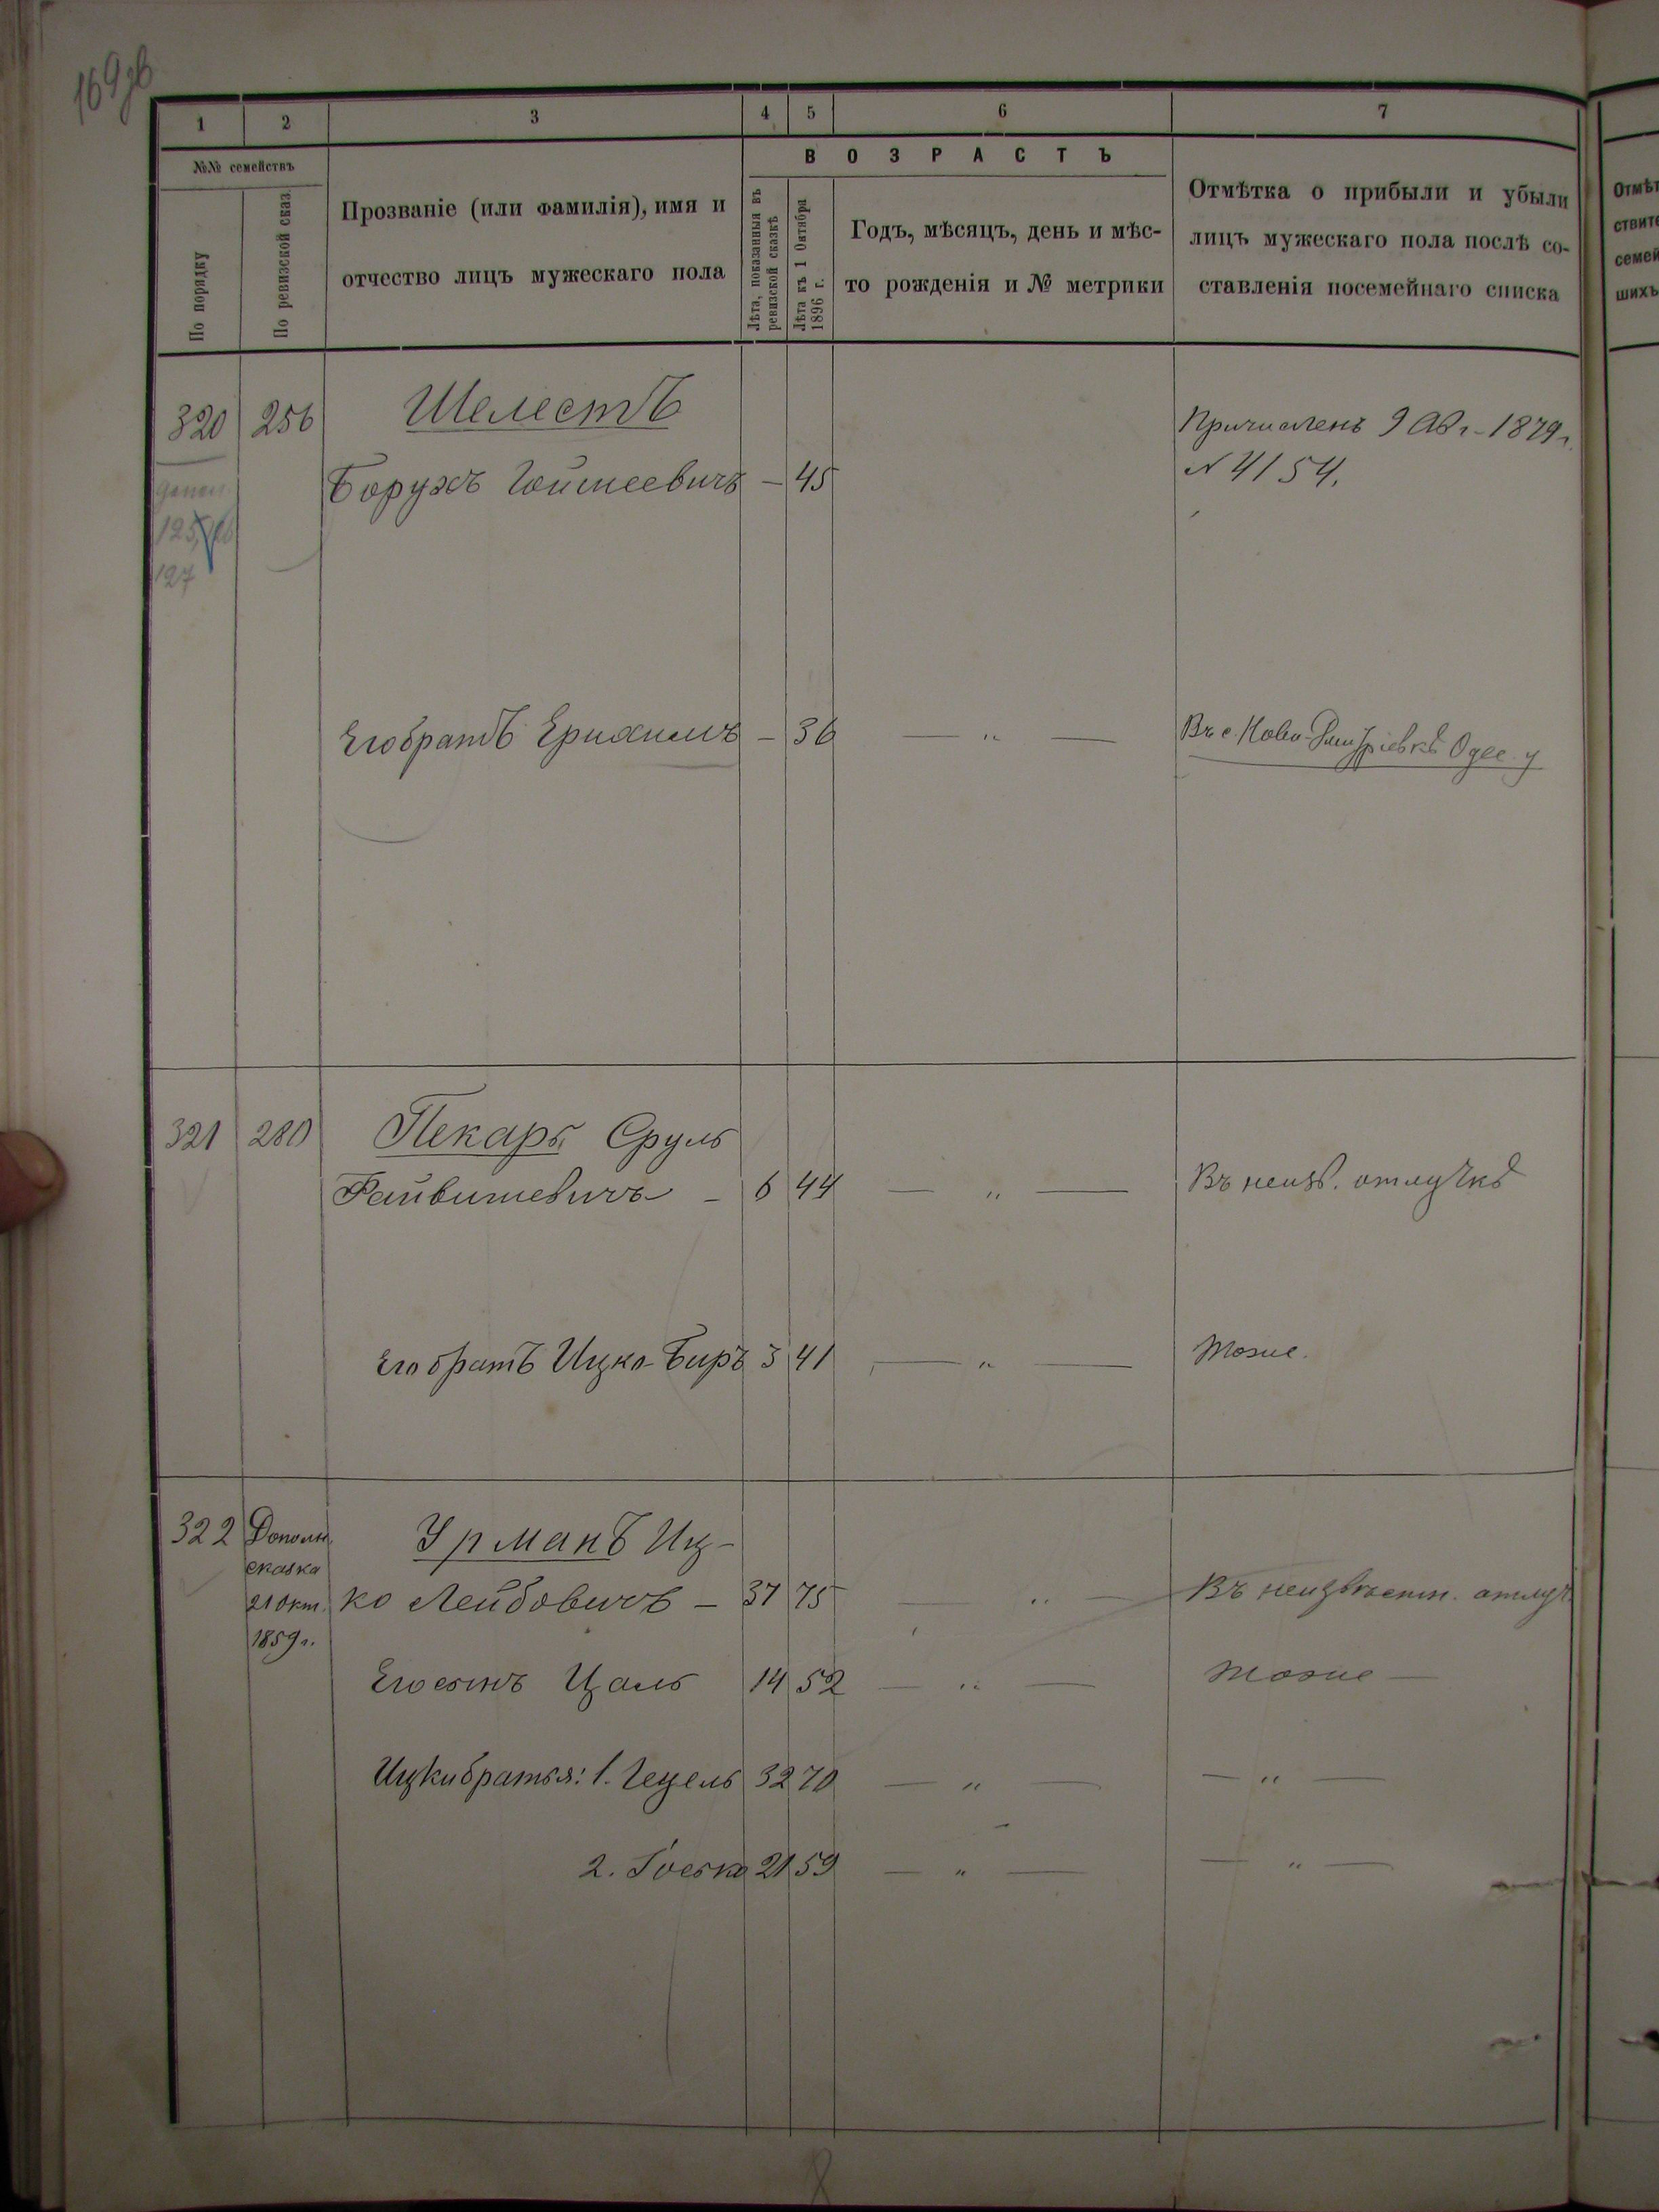 169об
1 2 3 4 5 6 7
№№ семействъ
По порядку
По ревизской сказ.
Прозваніе (или фамилія), имя и
отчество лицъ мужескаго пола
ВОЗРАСТЪ
Лѣта, показанныя въ
ревизской сказкѣ
Лѣта къ 1 Октября
1896 г.
Годъ, мѣсяцъ, день и мѣс-
то рожденія и № метрики
Отмѣтка о прибыли и убыли
лицъ мужескаго пола послѣ со-
ставленія посемейнаго списка
Отмѣт
ствите
семей
шихъ
320 256 Шелестъ Причисленъ 9 Авг. 1879 г.
Борухъ – 45 N 4154.
127
Его братъ Ерихимъ – 36 — „ — Въ с. Ново- Одес. у
321 280 Пекарь Сруль
Файвишевичъ – 6 44 — „ — Въ неизв. отлучкѣ
Его братъ Ицко-Беръ 3 41 — „ — Тоже.
322 Дополн. Урманъ Иц-
сказка
21 Окт. ко Лейбовичъ – 37 75 — „ — Въ неизвѣстн. отлуч.
1859 г.
Его сынъ Цаль 14 52 — „ — Тоже —
Ицки братья: 1. Гецель 32 70 — „ — — „ —
2. Іоська 21 59 — „ — — „ —